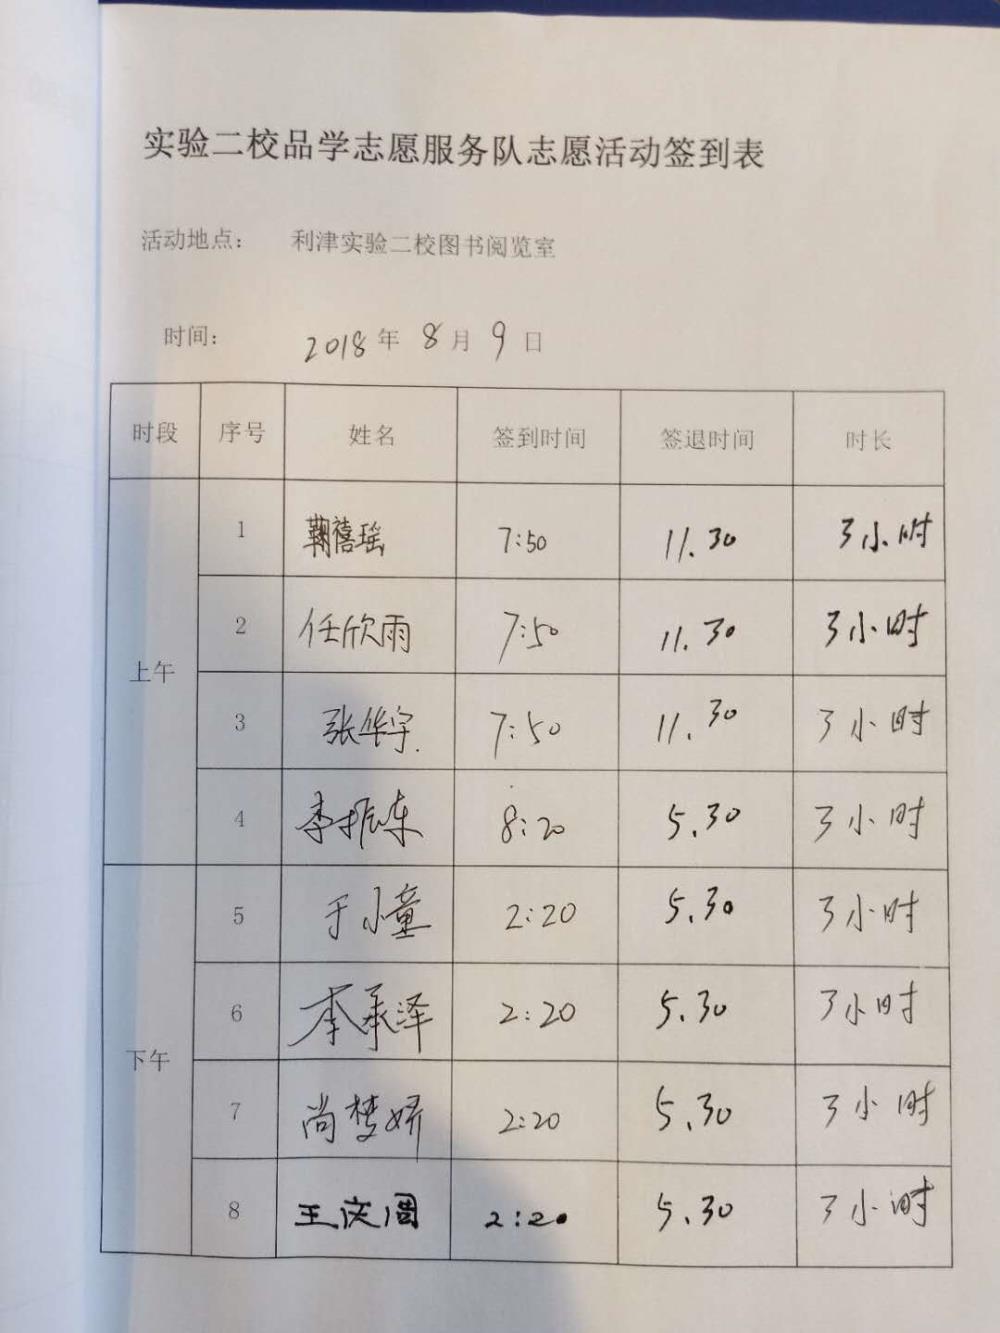 实验二校品学志愿服务队志愿活动签到表
活动地点： 利津实验二校图书阅览室
时间： 2018年 8月 9日
时段 序号 姓名 签到时间 签退时间 时长
上午
1 鞠禧瑶 7:50 11.30 3小时
2 任欣雨 7:50 11.30 3小时
3 张华宇 7:50 11.30 3小时
4 李振东 8:20 5.30 3小时
下午
5 于小童 2:20 5.30 3小时
6 李承泽 2:20 5.30 3小时
7 尚梦娇 2:20 5.30 3小时
8 王庆国 2:20 5.30 3小时